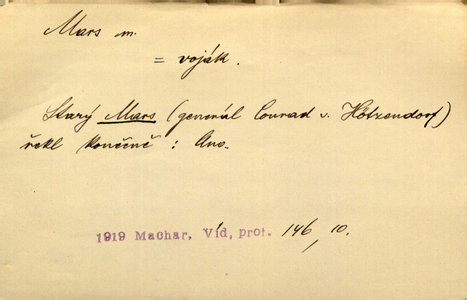 Mars m.
= voják.
Starý Mars (generál Conrad v. Hötzendorf)
řekl konečně: Ano.
1919 Machar, Víd, prof. 146, 10.